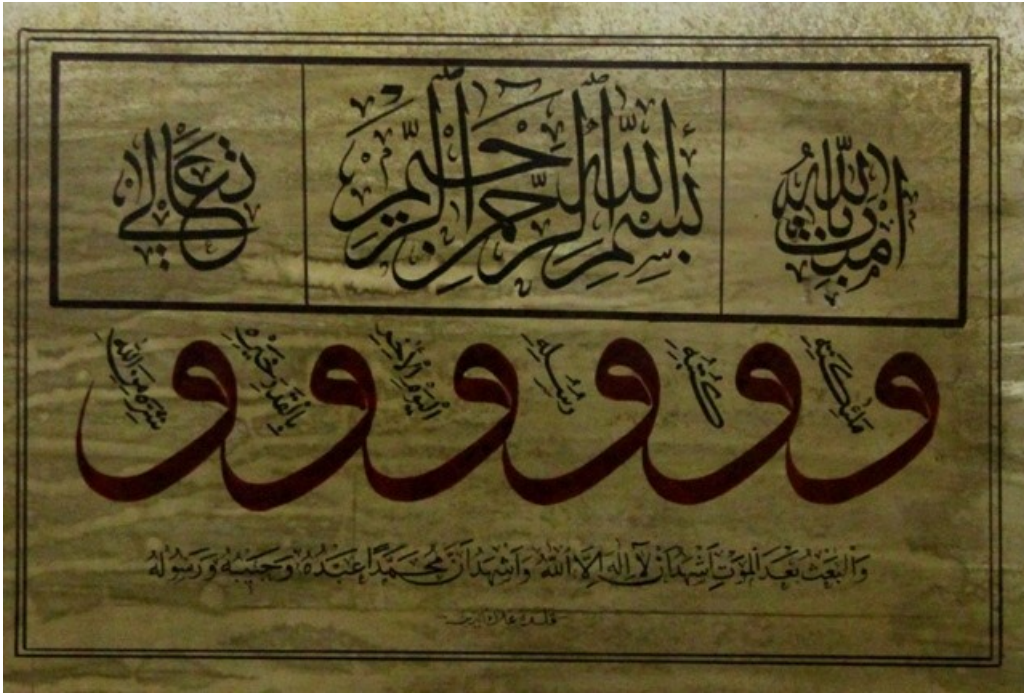 بِسْمِ اللّٰهِ الرَّحْمٰنِ الرَّحِيمِ
اٰمَنْتُ بِاللّٰهِ
تَعَالٰى
و مَلٰئِكَتِهِ و كُتُبِهِ و رُسُلِهِ و الْيَوْمِ الْاٰخِرِ و بِالْقَدَرِ خَيْرِهِ و شَرِّهِ مِنَ اللّٰهِ
وَالْبَعْثُ بَعْدَ الْمَوْتِ اَشْهَدُ اَنْ لَآ اِلٰهَ اِلَّا اللّٰهُ وَاَشْهَدُ اَنَّ مُحَمَّدًا عَبْدُهُ وَحَبِيبُهُ وَرَسُولُهُ